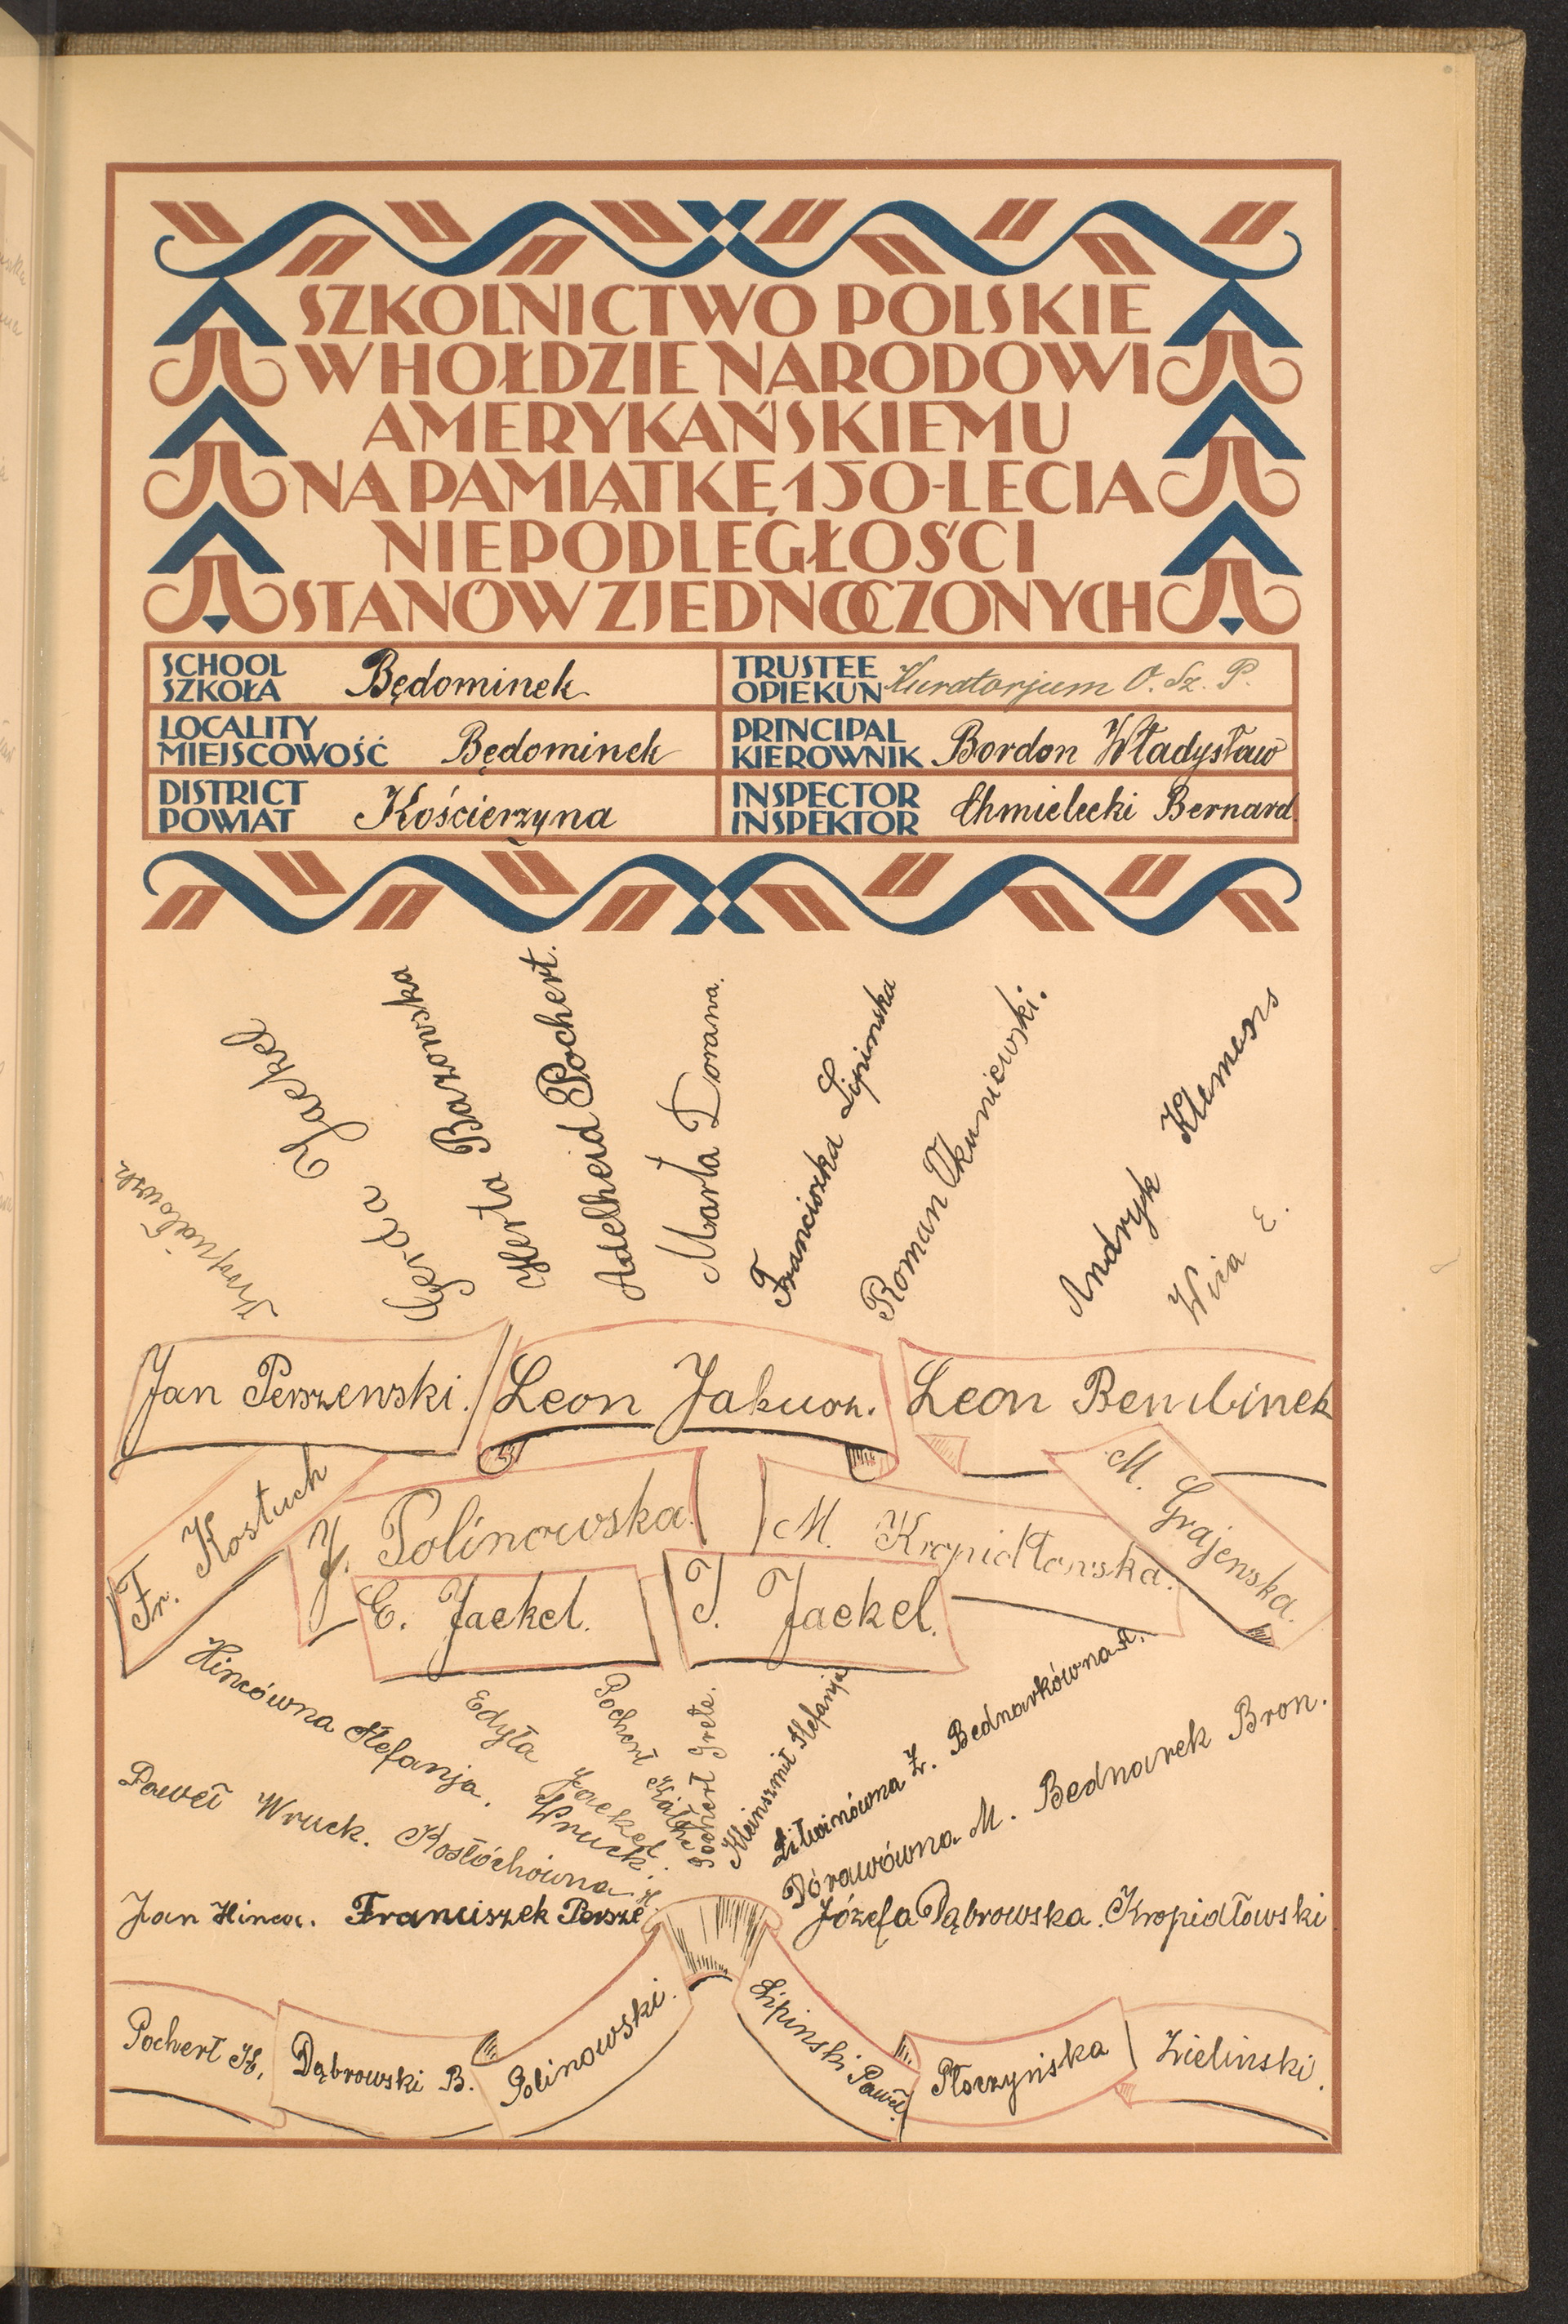 SZKOLNICTWO POLSKIE
W HOŁDZIE NARODOWI
AMERYKAŃSKIEMU
NA PAMIĄTKĘ 150-LECIA
NIEPODLEGŁOŚCI
STANÓW ZJEDNOCZONYCH
SCHOOL
SZKOŁA
Będominek
TRUSTEE
OPIEKUN
Kuratorjum O. Sz. P.
LOCALITY
MIEJSCOWOŚĆ
Będominek
PRINCIPAL
KIEROWNIK
Bordon Władysław
DISTRICT
POWIAT
Kościerzyna
INSPECTOR
INSPEKTOR
Chmielecki Bernard
Gerda Jaekel
Herta Bazowska
Adelheid Pochert.
Marta Dorana.
Franciszka Lipinska
Roman Okuniewski.
Andryk Klemens
Wira E.
Jan Perszewski.
Leon Jakusz.
Leon Bembinek
Fr. Kostuch
J. Polinowska
M. Kropidłowska.
M. Grajewska.
E. Jaekel.
J. Jaekel.
Hincówna Stefanja.
Edyta Jaekel.
Pochert Käthe
Pochert Grete.
Kleinszmit Stefanja
Litwinówna Z. Bednarkówna A.
Paweł Wruck. Kostóchówna H.
Wruck.
Dórawówna M. Bednarek Bron.
Jan Hinca. Franciszek Persze
Józefa Dąbrowska. Kropidłowski
Pochert H.
Dąbrowski B.
Polinowski.
Lipinski Paweł.
Płoczyńska
Zielinski.